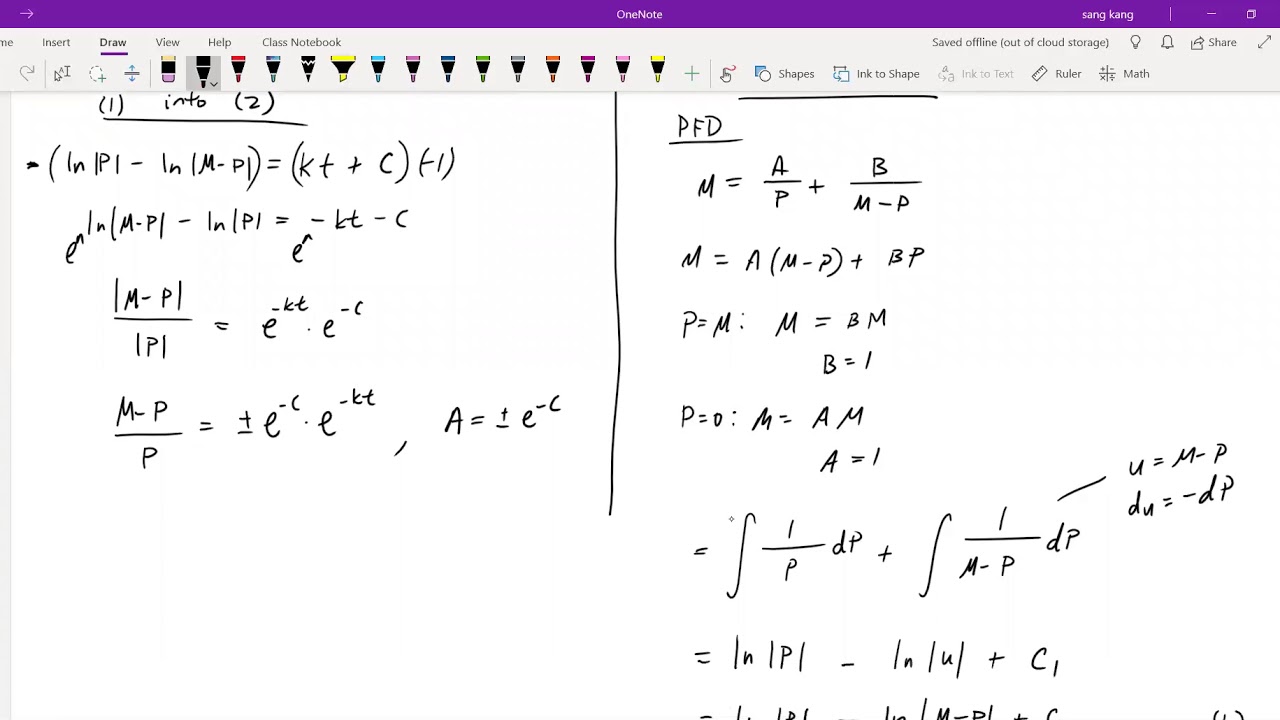 OneNote
sang kang
me Insert Draw View Help Class Notebook
Saved offline (out of cloud storage) Share
Shapes Ink to Shape Ink to Text Ruler Math
(1) into (2)
-(ln|P| - ln|M-P|) = (kt + C)(-1)
e^ ln|M-P| - ln|P| = e^ -kt - C
|M-P| / |P| = e^-kt · e^-C
M-P / P = ± e^-C · e^-kt , A = ± e^-C
PFD
M = A/P + B/M-P
M = A(M-P) + BP
P=M: M = BM
B = 1
P=0: M = AM
A = 1
u = M-P
du = -dP
= ∫ 1/P dP + ∫ 1/M-P dP
= ln|P| - ln|u| + C1